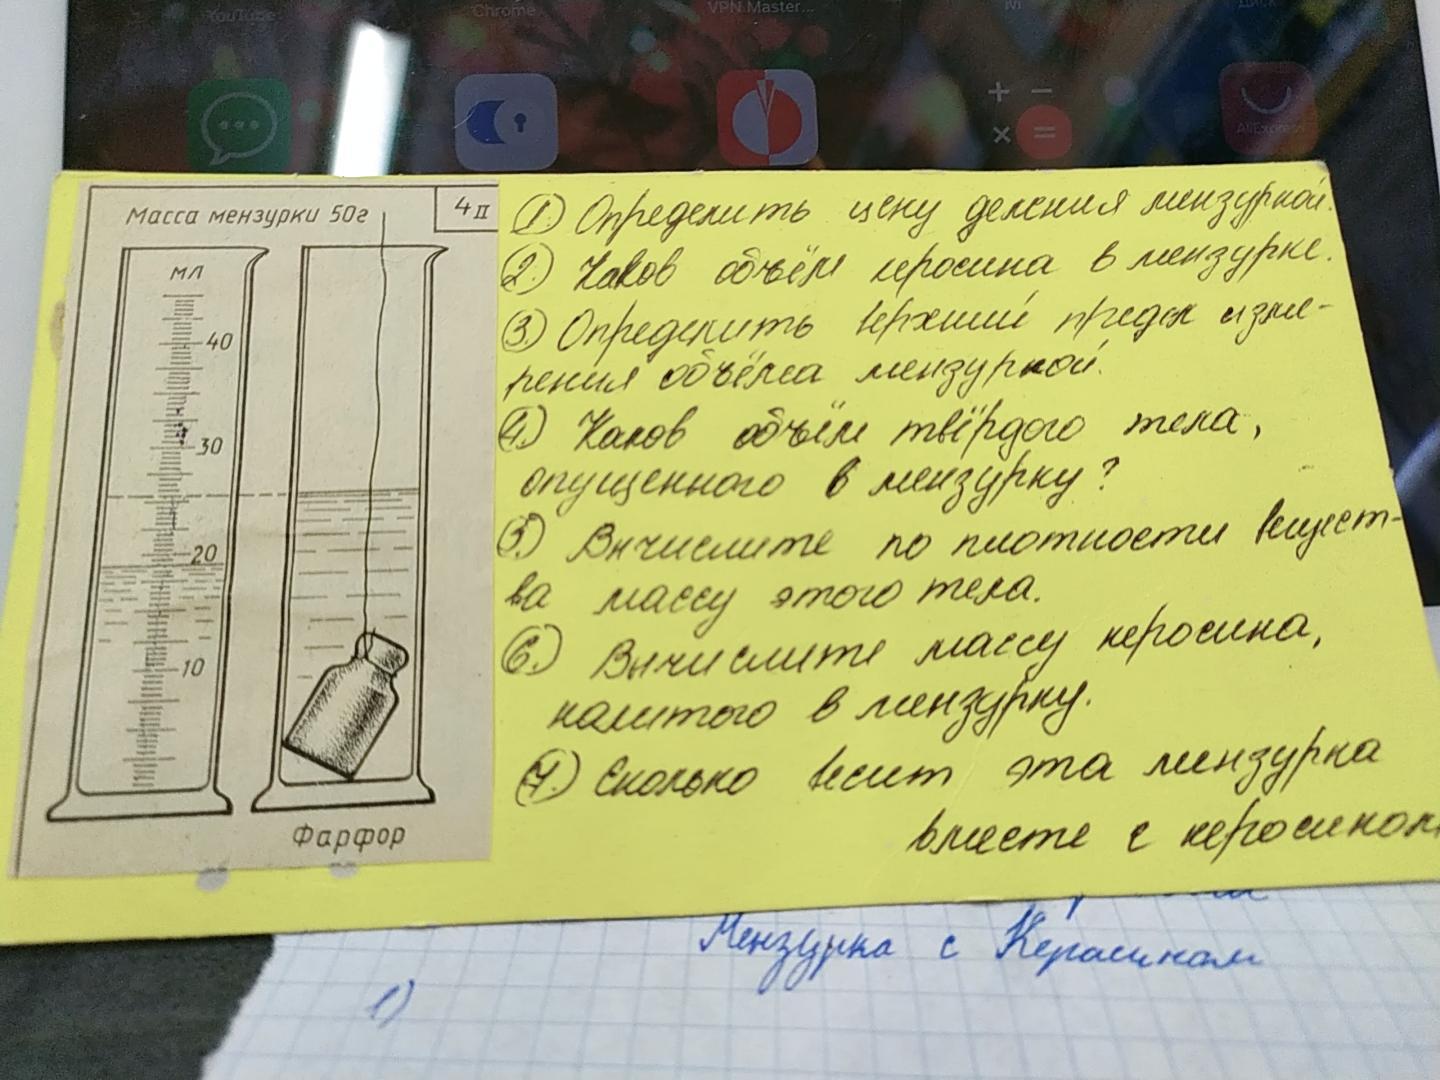 YouTube
Chrome
VPN Master...
Диск
+ −
× =
AliExpress
Масса мензурки 50г
4II
мл
40
30
20
10
Фарфор
1.) Определить цену деления мензуркой.
2.) Каков объём керосина в мензурке.
3.) Определить верхний предел изме-
рения объёма мензуркой.
4.) Каков объём твёрдого тела,
опущенного в мензурку?
5.) Вычислите по плотности вещест-
ва массу этого тела.
6.) Вычислите массу керосина,
налитого в мензурку.
7.) Сколько весит эта мензурка
вместе с керосином
Мензурка с Керасином
1)